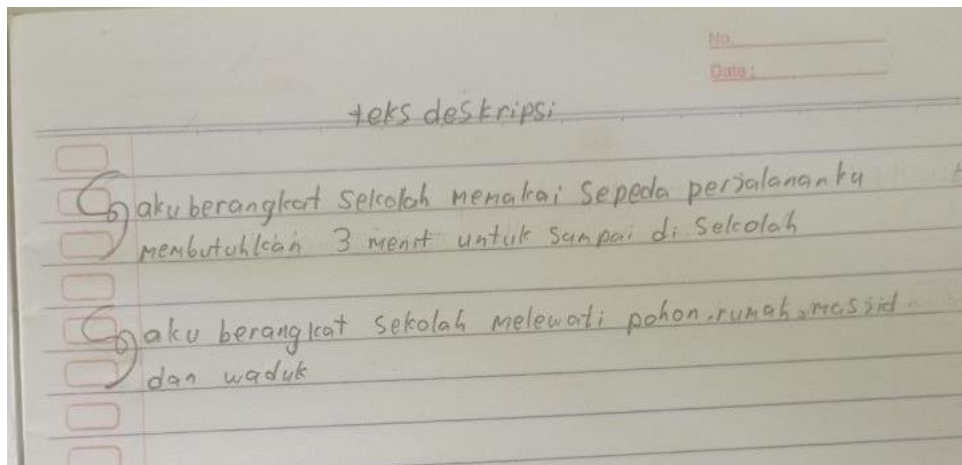 No.
Date:
teks deskripsi
aku berangkat sekolah memakai sepeda perjalananku
membutuhkan 3 menit untuk sampai di sekolah
aku berangkat sekolah melewati pohon, rumah, masjid
dan waduk